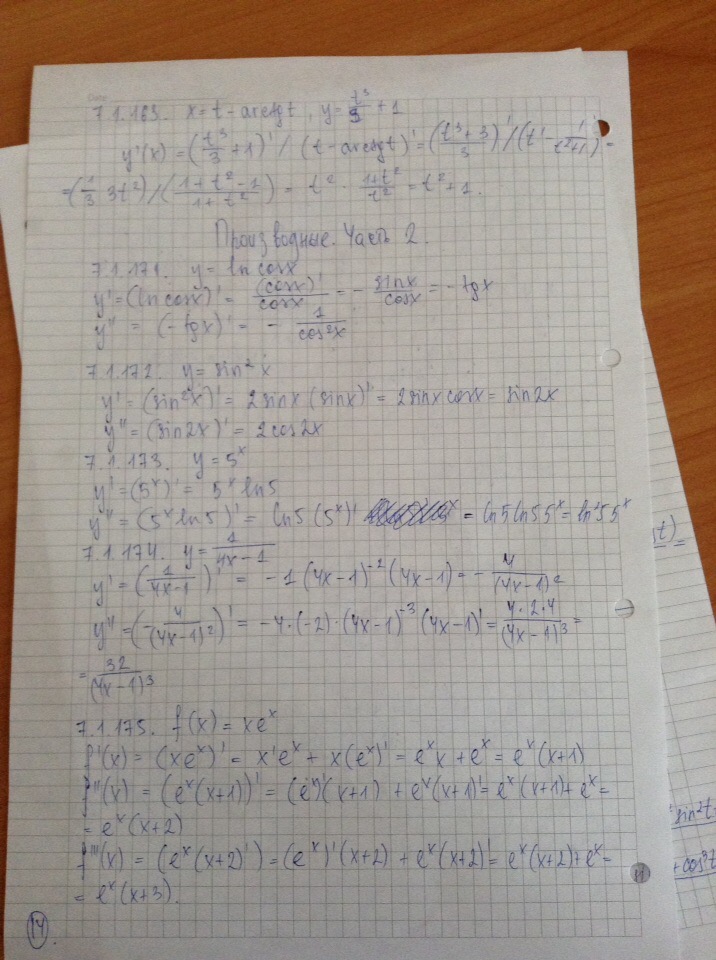 7.1.163. x = t - arctgt, y = t³/3 + 1
y'(x) = (t³/3 + 1)' / (t - arctgt)' = (t³+3/3)' / (t' - 1/t²+1) =
= (1/3 3t²) / (1+t²-1/1+t²) = t² · 1+t²/t² = t²+1.
Производные. Часть 2.
7.1.171. y = ln cosx
y' = (ln cosx)' = (cosx)'/cosx = - sinx/cosx = - tgx
y'' = (-tgx)' = - 1/cos²x
7.1.172. y = sin²x
y' = (sin²x)' = 2sinx (sinx)' = 2sinx cosx = sin2x
y'' = (sin2x)' = 2cos2x
7.1.173. y = 5ˣ
y' = (5ˣ)' = 5ˣ ln5
y'' = (5ˣ ln5)' = ln5 (5ˣ)' = ln5 ln5 5ˣ = ln²5 5ˣ
7.1.174. y = 1/4x-1
y' = (1/4x-1)' = -1 (4x-1)⁻² (4x-1) = - 4/(4x-1)²
y'' = (-4/(4x-1)²)' = -4·(-2)·(4x-1)⁻³ (4x-1)' = 4·2·4/(4x-1)³ =
= 32/(4x-1)³
7.1.175. f(x) = xeˣ
f'(x) = (xeˣ)' = x'eˣ + x(eˣ)' = eˣx + eˣ = eˣ(x+1)
f''(x) = (eˣ(x+1))' = (eˣ)'(x+1) + eˣ(x+1)' = eˣ(x+1) + eˣ =
= eˣ(x+2)
f'''(x) = (eˣ(x+2)') = (eˣ)'(x+2) + eˣ(x+2)' = eˣ(x+2) + eˣ =
= eˣ(x+3).
14.
sin²t
+cos²t